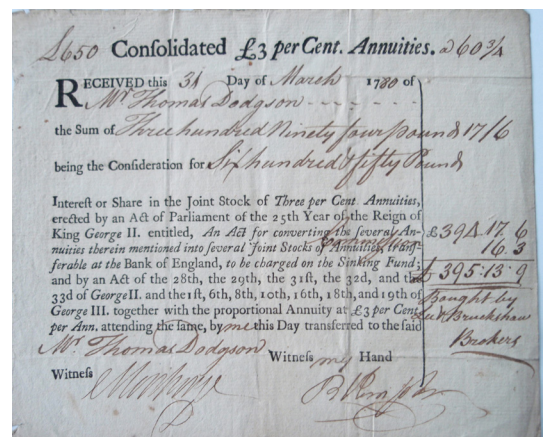 £650 Consolidated £3 per Cent. Annuities. a 60 3/4
RECEIVED this 31 Day of March 1780 of
Mr. Thomas Dodgson
the Sum of Three hundred Ninety four pounds 17/6
being the Consideration for Six hundred & fifty Pounds
Intereſt or Share in the Joint Stock of Three per Cent. Annuities,
erected by an Act of Parliament of the 25th Year of the Reign of
King George II. entitled, An Act for converting the ſeveral An-
nuities therein mentioned into ſeveral Joint Stocks of Annuities, tranſ-
ferable at the Bank of England, to be charged on the Sinking Fund;
and by an Act of the 28th, the 29th, the 31ſt, the 32d, and the
33d of George II. and the 1ſt, 6th, 8th, 10th, 16th, 18th, and 19th of
George III. together with the proportional Annuity at £3 per Cent.
per Ann. attending the ſame, by me this Day transferred to the ſaid
Mr. Thomas Dodgson
Witneſs my Hand
Witneſs
£394. 17. 6
16. 3
£395:13:9
Bought by
Bruckshaw
Brokers